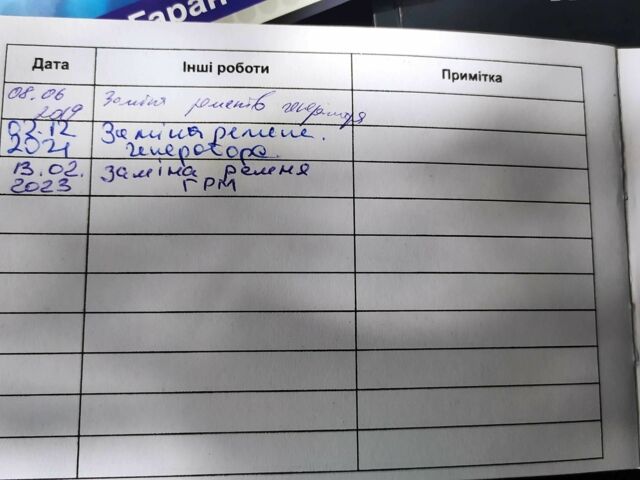 Гаран
Дата Інші роботи Примітка
08.06 Заміна ременів генератора
2019
02.12 Заміна ремене.
2021 генератора.
13.02. Заміна ременя
2023 ГРМ